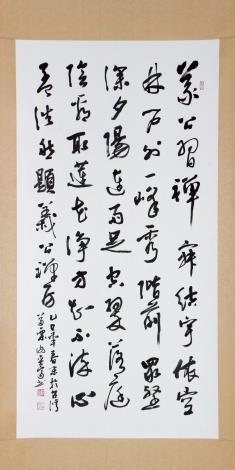 義公習禪寂結宇依空
林戶外一峰秀階前眾壑
深夕陽連雨足空翠落庭
陰看取蓮花淨方知不染心
孟浩然題義公禪房
乙巳年春